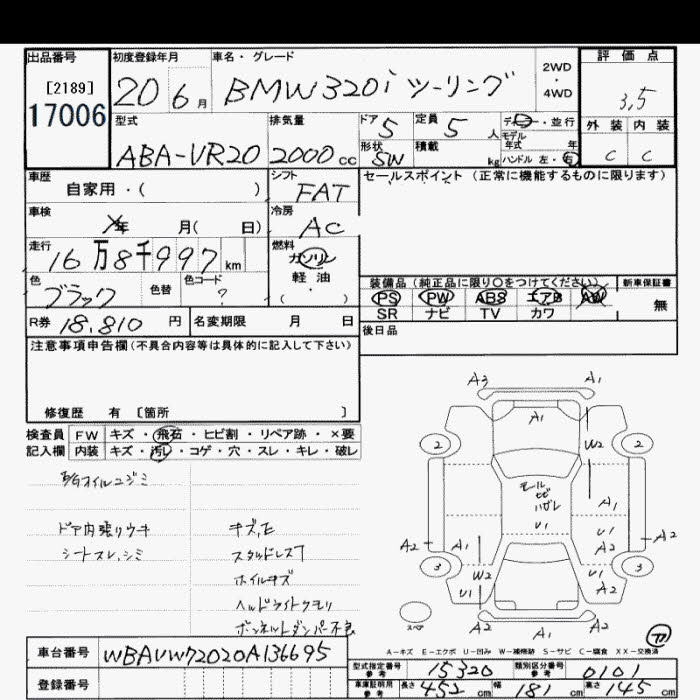 出品番号
[2189]
17006
初度登録年月
20 6月
車名・グレード
BMW320i ツーリング
2WD
・
4WD
評価点
3,5
外装 内装
C C
型式
ABA-VR20
排気量
2000cc
ドア
5
定員
5人
ディーラー・並行
モデル
年式 年
形状
SW
積載
kg
ハンドル 左・右
車歴
自家用・( )
シフト
FAT
セールスポイント(正常に機能するものに限ります)
車検
年 月( 日)
冷房
AC
走行
16万8千997km
燃料
ガソリン
軽油
・
( )
色
ブラック
色替
色コード
?
装備品(純正品に限り○をつけてください)
新車保証書
PS PW ABS エアB AW
SR ナビ TV カワ
無
R券 18,810円
名変期限 月 日
後日品
注意事項申告欄(不具合内容等は具体的に記入して下さい)
修復歴 有 [箇所 ]
検査員
記入欄
FW キズ・飛石・ヒビ割・リペア跡・×要
内装 キズ・汚レ・コゲ・穴・スレ・キレ・破レ
オイルニジミ
ドア内張りウキ
シートスレ、シミ
キズ,E
スタッドレス7
ホイルキズ
ヘッドライトクモリ
ボンネットダンパー不良
A3 A1
A1
2 W2 2
モール
ハガレ
A1
U1
U1
A2 A1 A2 A2
3 W2 U1 3
U1 A2
スペア
A2 A1 A2
77
A-キズ E-エクボ U-凹み W-補修跡 S-サビ C-腐食 XX-交換済
車台番号
WBAVW72020A136695
登録番号
型式指定番号
参考
15320
類別区分番号
参考
0101
車庫証明用
参考
長さ 452cm 幅 181cm 高さ 145cm